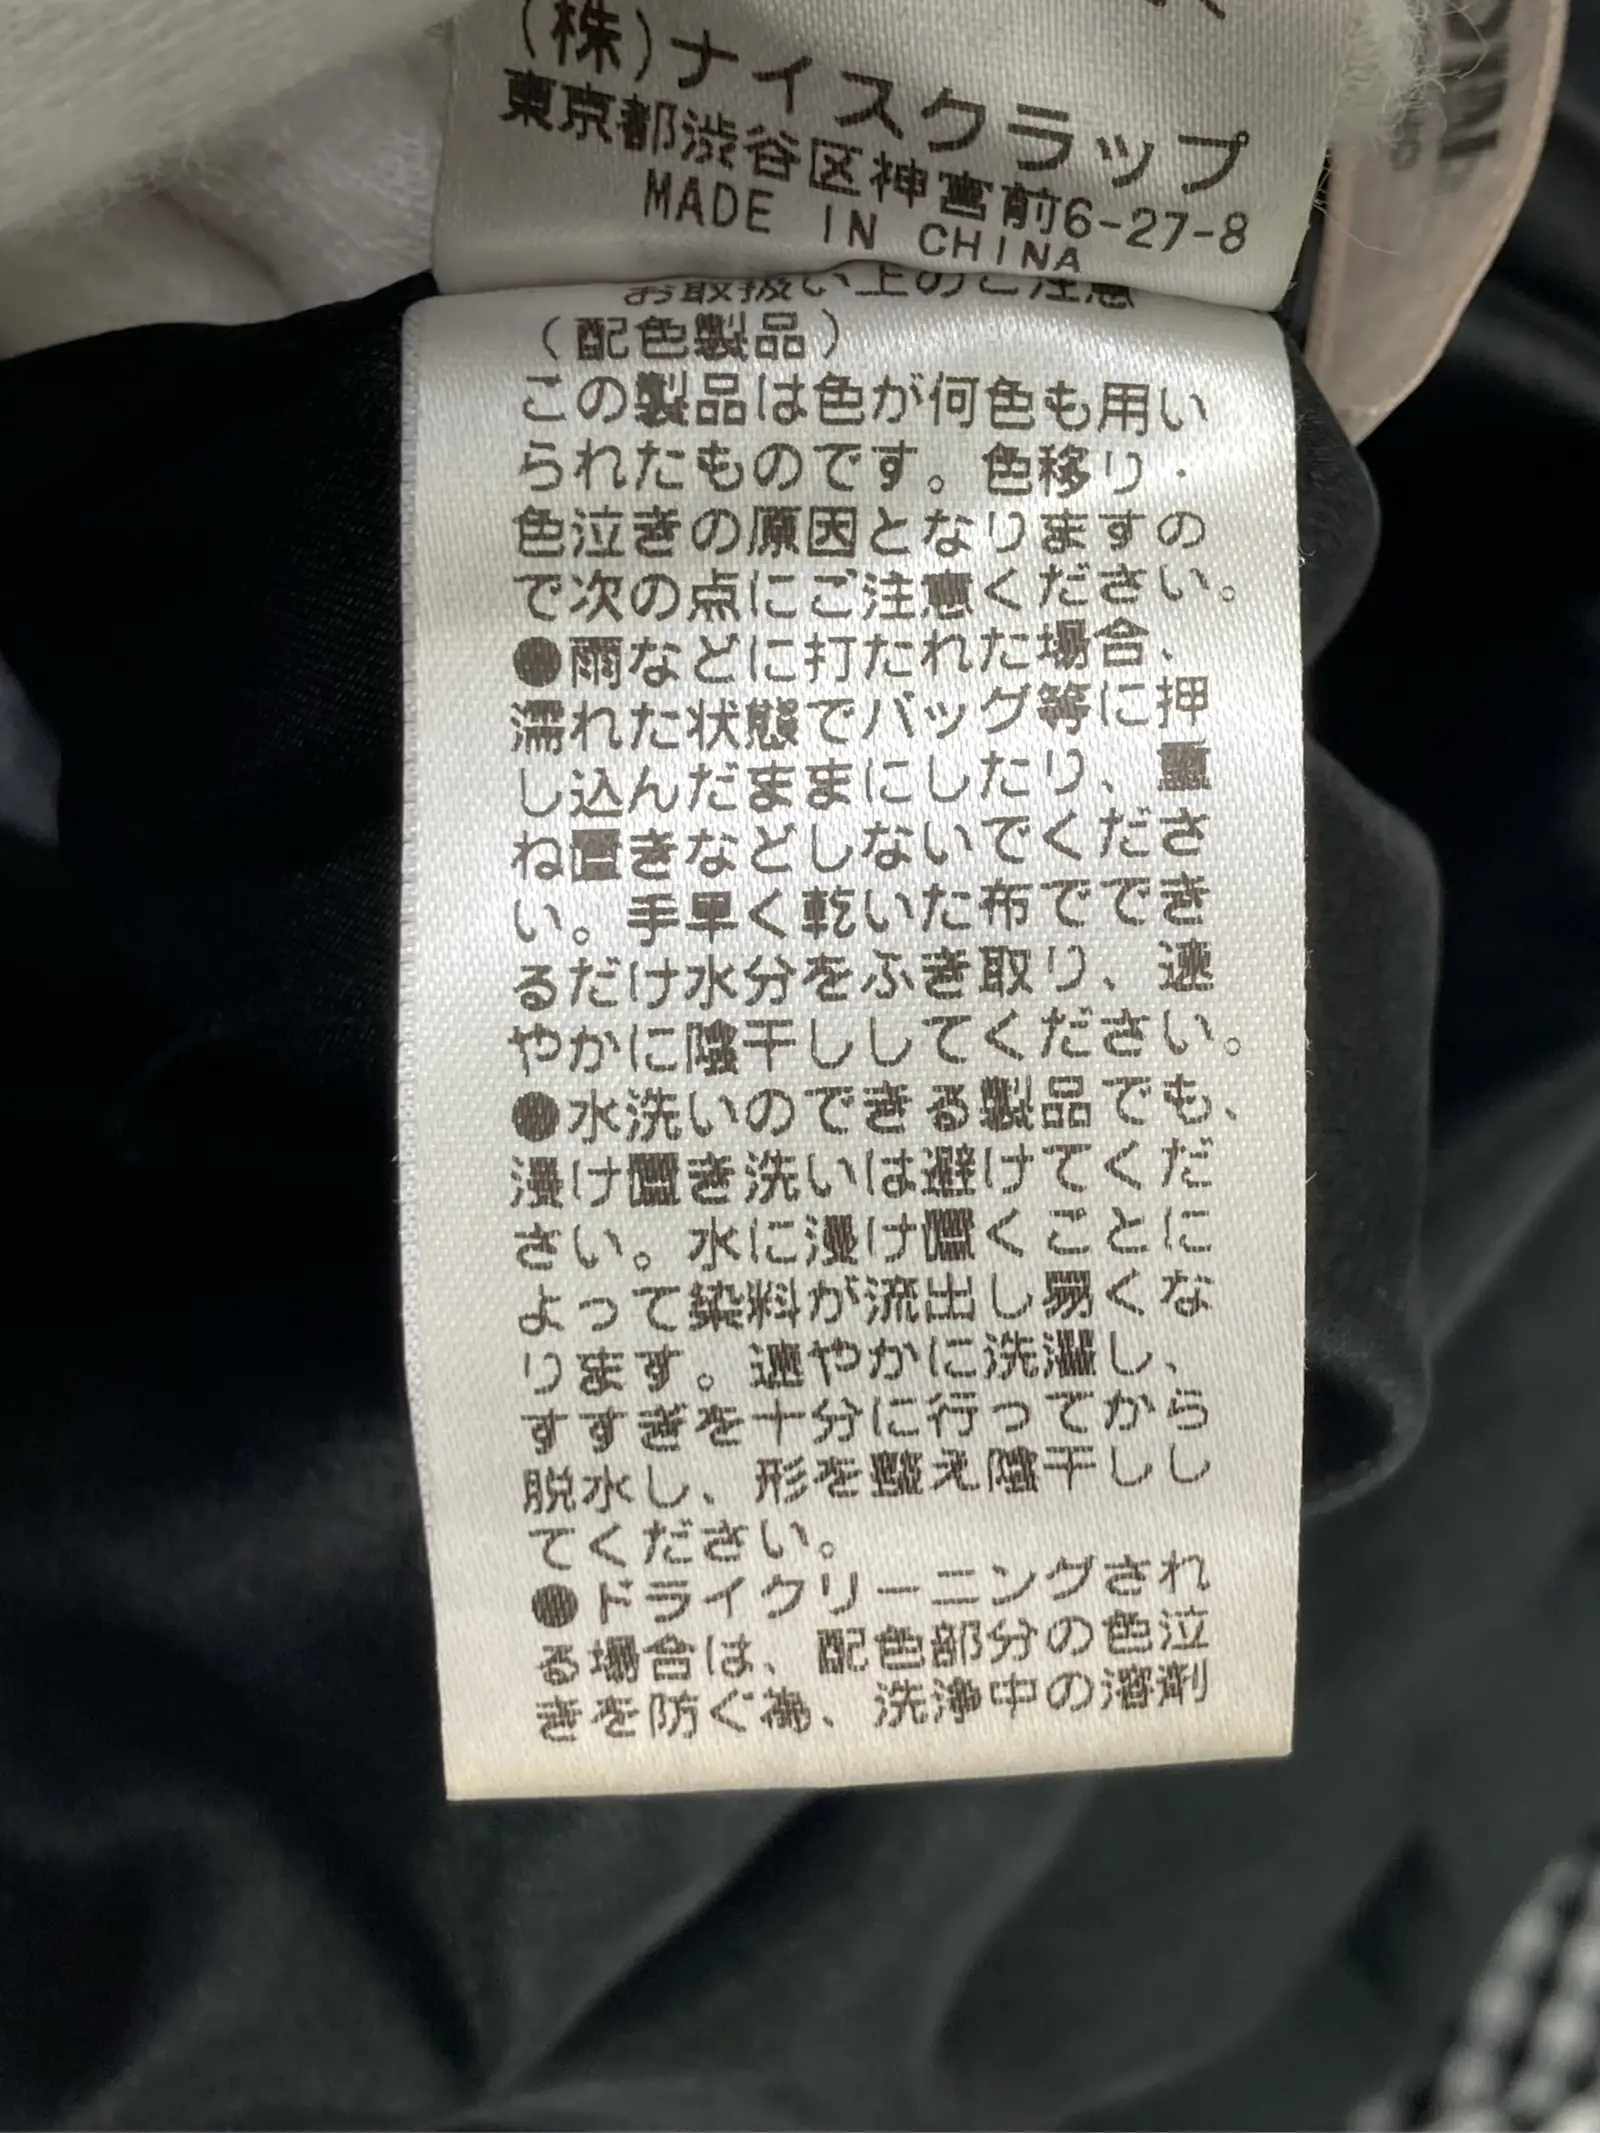 (株)ナイスクラップ
東京都渋谷区神宮前6-27-8
MADE IN CHINA
お取扱い上のご注意
(配色製品)
この製品は色が何色も用い
られたものです。色移り・
色泣きの原因となりますの
で次の点にご注意ください。
●雨などに打たれた場合、
濡れた状態でバッグ等に押
し込んだままにしたり、重
ね置きなどしないでくださ
い。手早く乾いた布ででき
るだけ水分をふき取り、速
やかに陰干ししてください。
●水洗いのできる製品でも、
浸け置き洗いは避けてくだ
さい。水に浸け置くことに
よって染料が流出し易くな
ります。速やかに洗濯し、
すすぎを十分に行ってから
脱水し、形を整え陰干しし
てください。
●ドライクリーニングされ
る場合は、配色部分の色泣
きを防ぐ為、洗浄中の溶剤